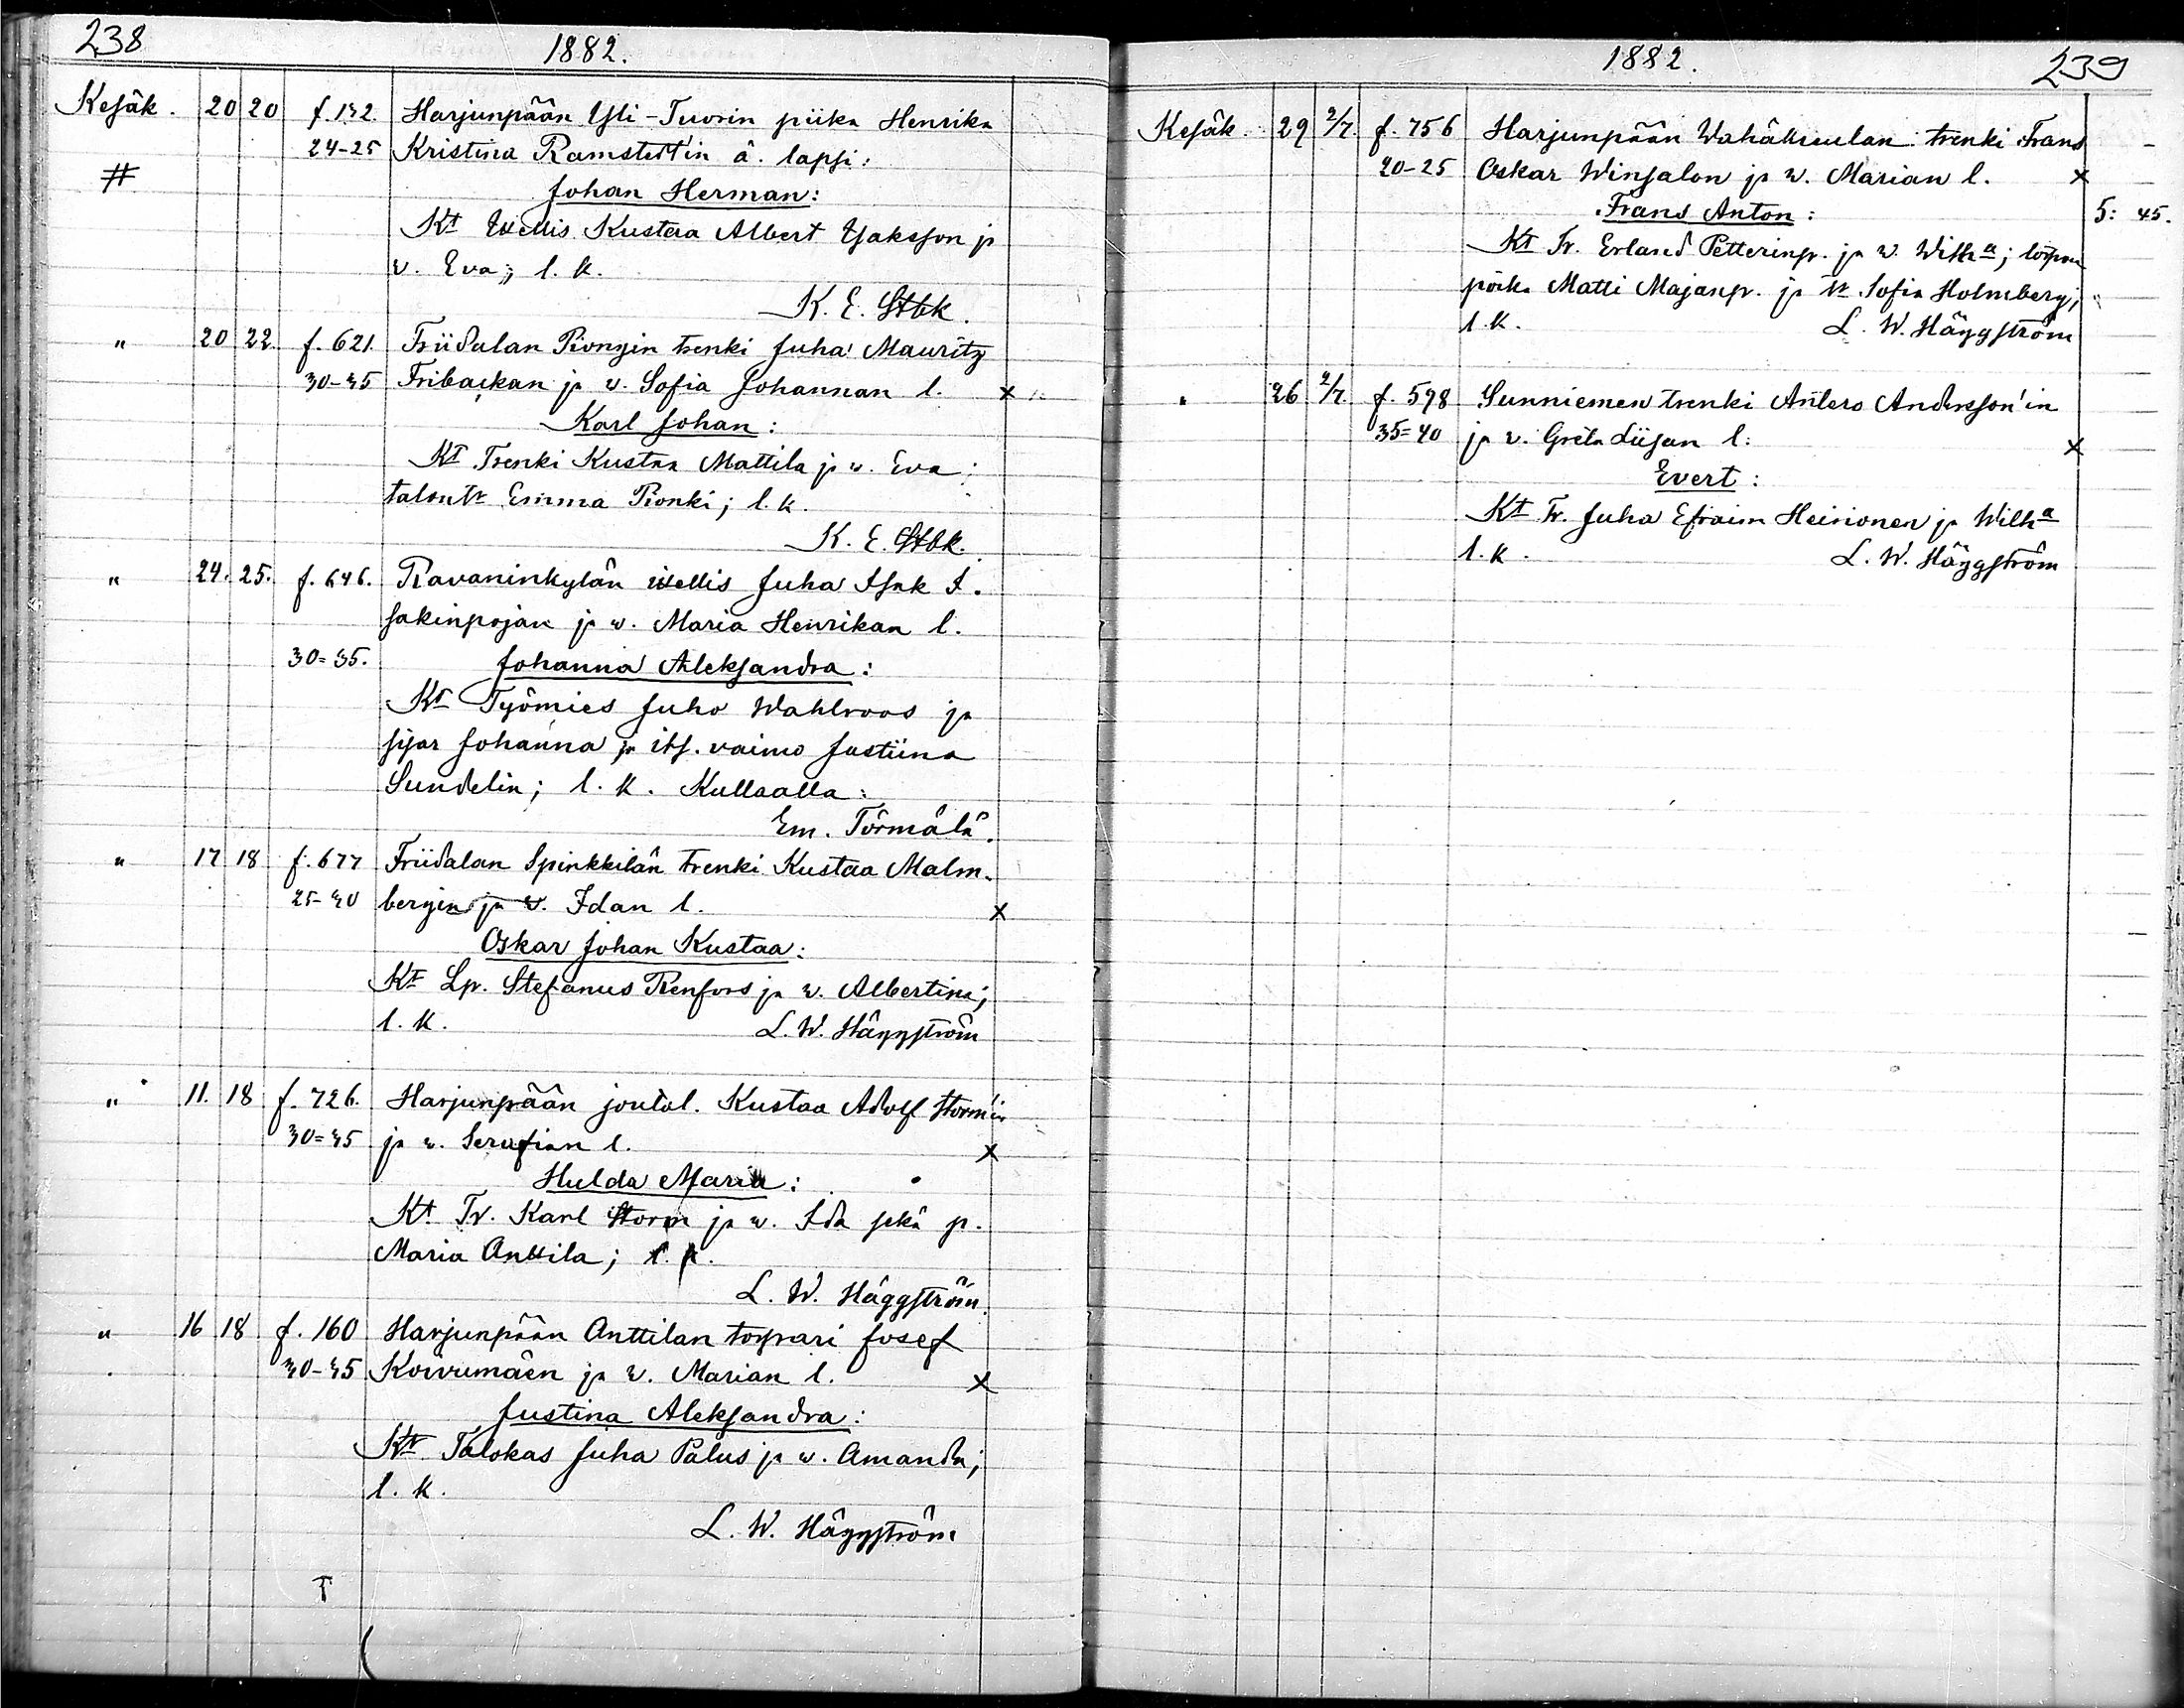 238
1882.
Kesäk. 20 20 f. 132. Harjunpään Yli-Tuorin piika Henrika
24-25 Kristina Ramstedt'in ä. lapsi:
#
Johan Herman:
Kt Itsellis Kustaa Albert Isaksson ja
v. Eva; l. k.
K. E. Stbk.
" 20 22. f. 621. Friidalan Rongin trenki Juha Mauritz
30-35 Fribackan ja v. Sofia Johannan l. x
Karl Johan:
Kt Trenki Kustaa Mattila ja v. Eva;
talontr Emma Ronki; l. k.
K. E. Stbk.
" 24. 25. f. 646. Ravaninkylän itsellis Juha Isak I.
sakinpojan ja v. Maria Henrikan l.
30=35. Johanna Aleksandra:
Kt Työmies Juho Wahlroos ja
sisar Johanna ja its. vaimo Justiina
Sundelin; l. k. Kullaalla:
Em. Törmälä.
" 17 18 f. 677 Friidalan Spinkkilän trenki Kustaa Malm-
25-30 bergin ja v. Idan l. x
Oskar Johan Kustaa:
Kt Lp. Stefanus Renfors ja v. Albertina;
l. k. L. W. Häggström
" 11. 18 f. 726. Harjunpään joutol. Kustaa Adolf Storm'in
30=35 ja v. Serafian l. x
Hulda Maria:
Kt Tr. Karl Storm ja v. Ida sekä p.
Maria Anttila; l. k.
L. W. Häggström.
" 16 18 f. 160 Harjunpään Anttilan torpari Josef
30-35 Koivumäen ja v. Marian l. x
Justina Aleksandra:
Kt Talokas Juha Palus ja v. Amanda;
l. k.
L. W. Häggström
1882.
239
Kesäk. 29 2/7. f. 756 Harjunpään Wähäkuulan trenki Frans
20-25 Oskar Winsalon ja v. Marian l. x
Frans Anton: 5: 45.
Kt Tr. Erland Petterinp. ja v. Wilha; torpan
poika Matti Majanp. ja tr Sofia Holmberg;
l. k. L. W. Häggström
" 26 2/7. f. 598 Sunniemen trenki Antero Andersson'in
35=40 ja v. Greta Liisan l. x
Evert:
Kt Tr. Juha Efraim Heinonen ja Wilha
l. k. L. W. Häggström